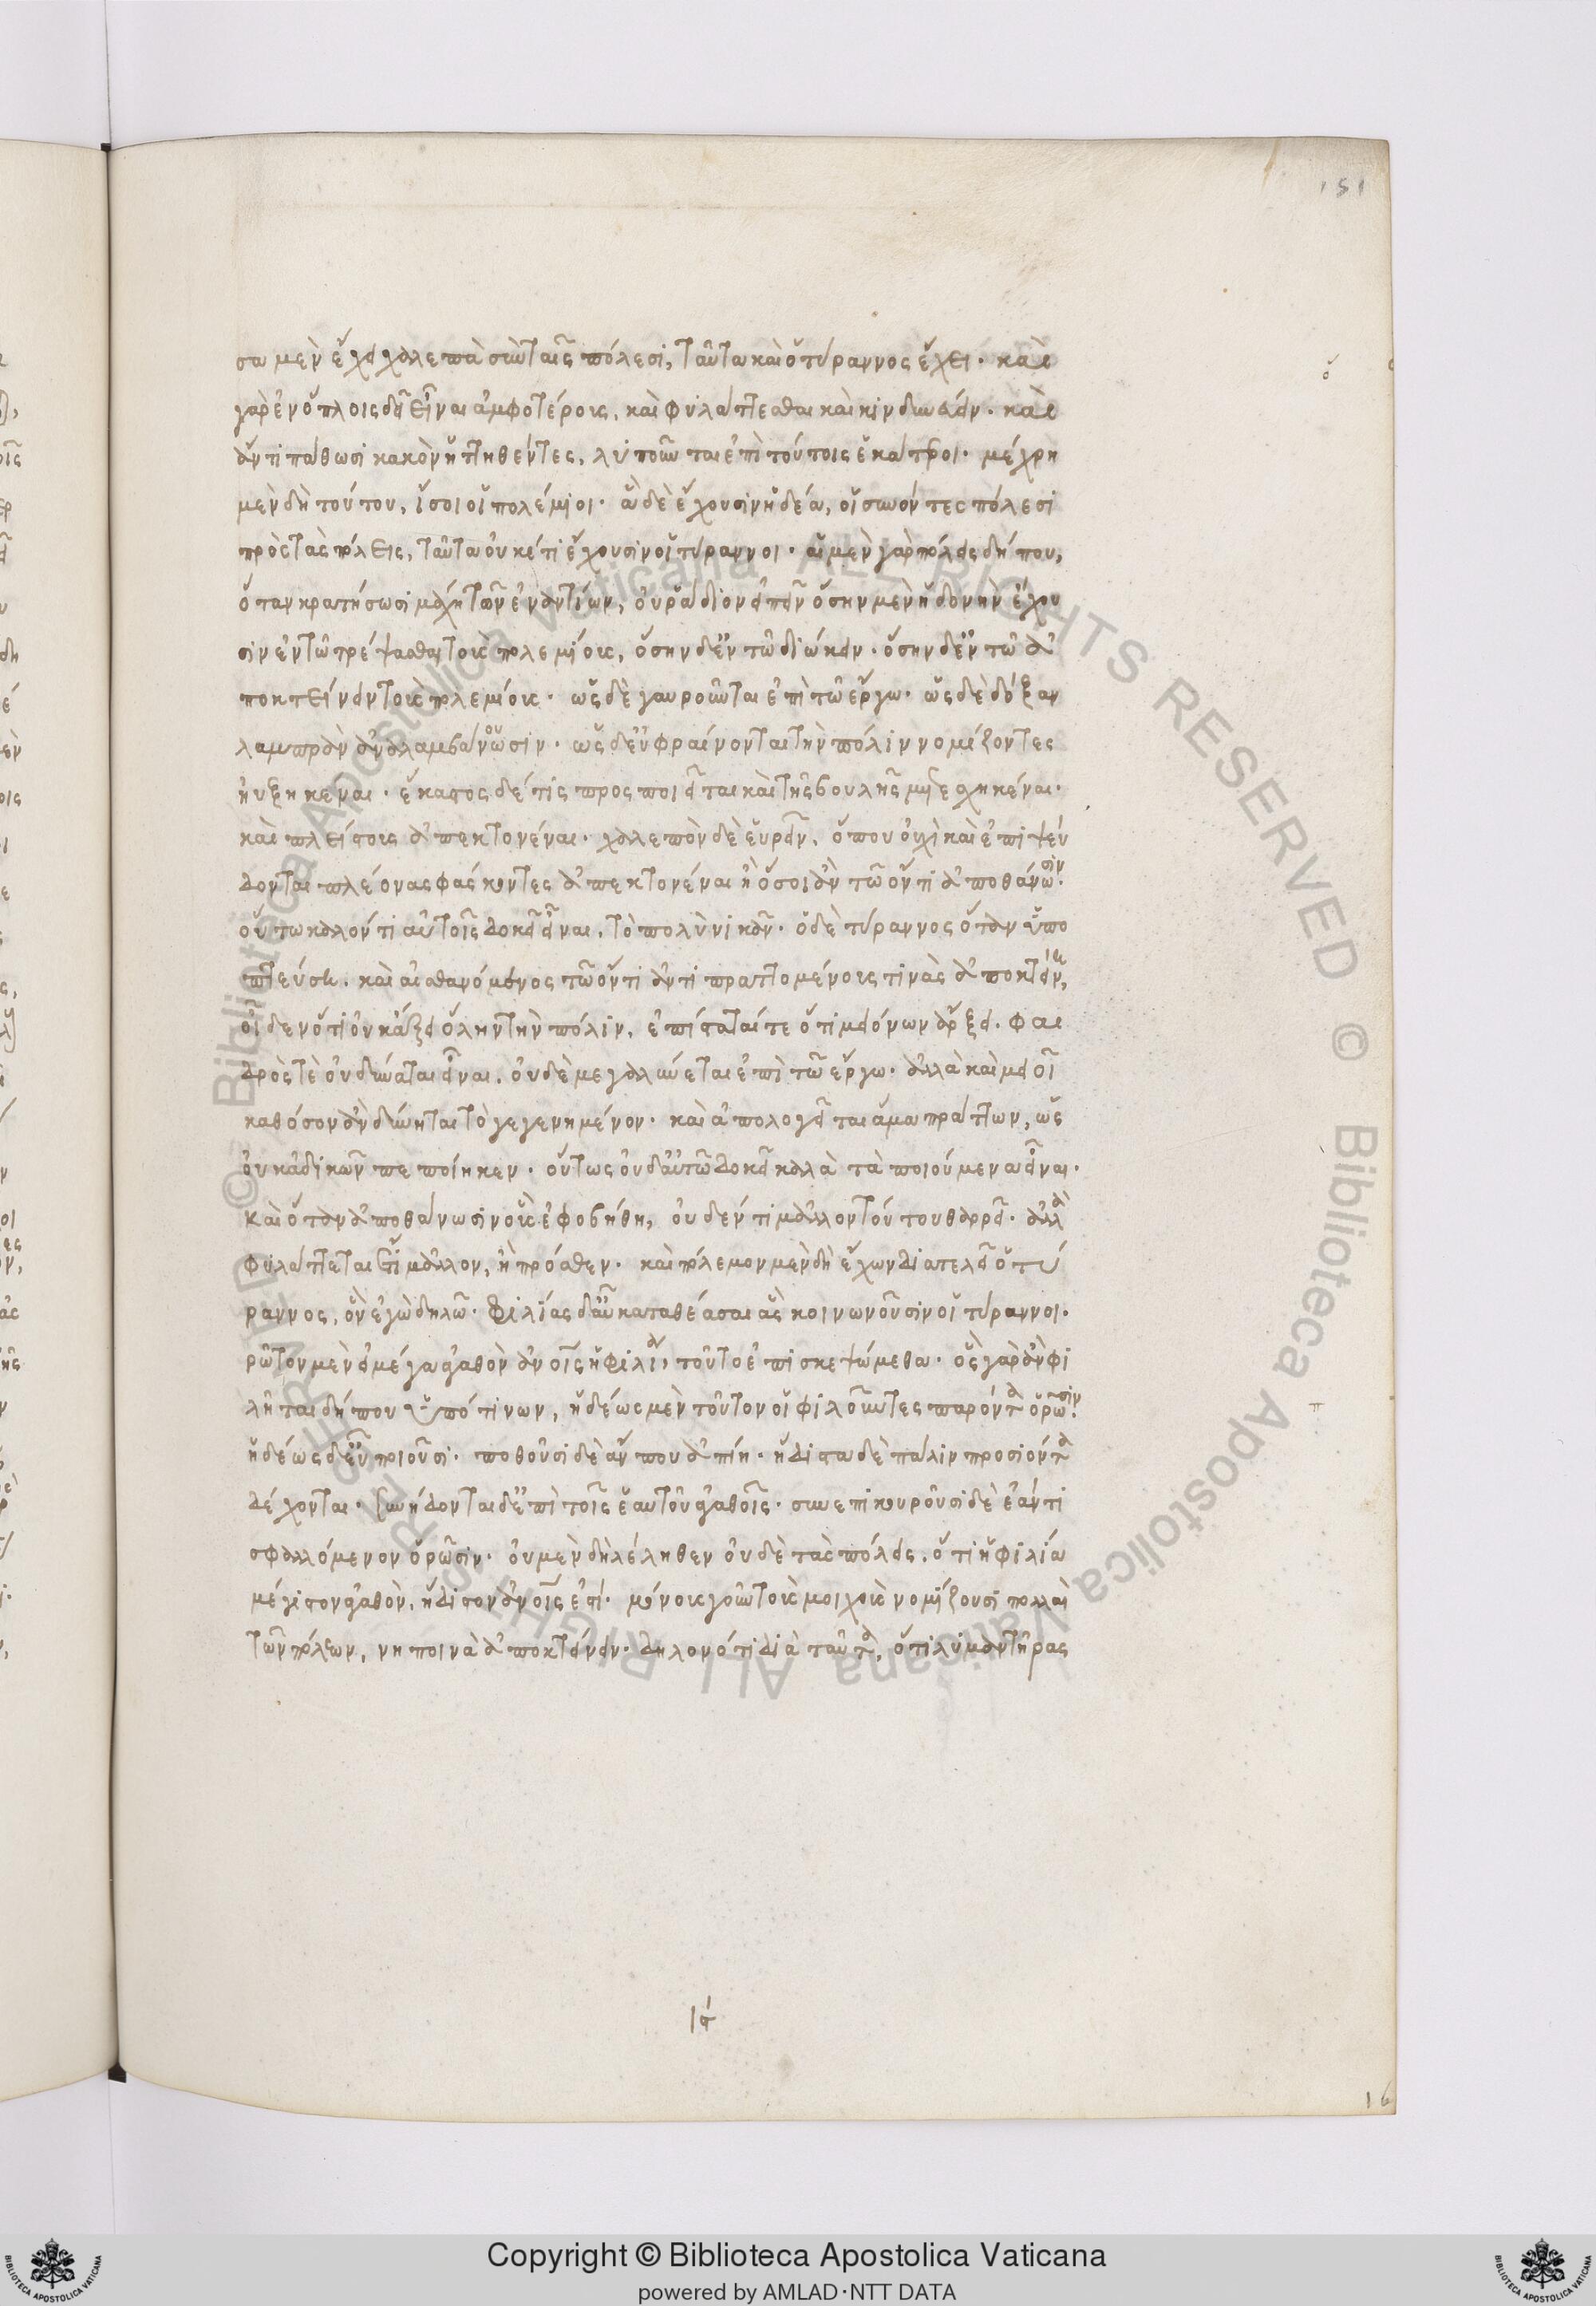 151
σα μὲν ἔχει χαλεπὰ σὺν ταῖς πόλεσι, ταῦτα καὶ ὁ τύραννος ἔχει. καὶ
γὰρ ἐν ὅπλοις δεῖ εἶναι ἀμφοτέροις, καὶ φυλάττεσθαι καὶ κινδυνεύειν. καὶ
ἄν τι πάθωσι κακὸν ἡττηθέντες, λυποῦνται ἐπὶ τούτοις ἑκάτεροι. μέχρη
μὲν δὴ τούτου, ἴσοι οἱ πολέμιοι. ἃ δὲ ἔχουσιν ἡδέα, οἱ συνόντες πόλεσι
πρὸς τὰς πόλεις, ταῦτα οὐκέτι ἔχουσιν οἱ τύραννοι. αἱ μὲν γὰρ πόλεις δήπου,
ὅταν κρατήσωσι μάχη τῶν ἐναντίων, οὐ ῥάδιον εἰπεῖν ὅσην μὲν ἡδονὴν ἔχου
σιν ἐν τῶ τρέψασθαι τοὺς πολεμίους, ὅσην δ' ἐν τῶ διώκειν. ὅσην δ' ἐν τῶ ἀ
ποκτείνειν τοὺς πολεμίους. ὡς δὲ γαυροῦνται ἐπὶ τῶ ἔργω. ὡς δὲ δόξαν
λαμπρὰν ἀναλαμβάνωσιν. ὡς δ' εὐφραίνονται τὴν πόλιν νομίζοντες
ηὐξηκέναι. ἕκαστος δέ τις προσποιεῖται καὶ τῆς βουλῆς μετεσχηκέναι.
καὶ πλείστους ἀπεκτονέναι. χαλεπὸν δὲ εὑρεῖν, ὅπου οὐχὶ καὶ ἐπιψεύ
δονται πλέονας φάσκοντες ἀπεκτονέναι ἢ ὅσοι ἂν τῶ ὄντι ἀποθάνωσιν.
οὕτω καλόν τι αὐτοῖς δοκεῖ εἶναι, τὸ πολὺ νικᾶν. ὁ δὲ τύραννος ὅταν ὑπο
πτεύση, καὶ αἰσθανόμενος τῶ ὄντι ἀντιπραττομένους τινὰς ἀποκτείνη,
οἶδεν ὅτι οὐκ αὔξει ὅλην τὴν πόλιν, ἐπίσταταί τε ὅτι μειόνων ἄρξει. φαι
δρός τὲ οὐ δύναται εἶναι, οὐδὲ μεγαλύνεται ἐπὶ τῶ ἔργω. ἀλλὰ καὶ μειοῖ
καθόσον ἂν δύνηται τὸ γεγενημένον. καὶ ἀπολογεῖται ἅμα πράττων, ὡς
οὐκ ἀδικῶν πεποίηκεν. οὕτως οὐδ' αὐτῶ δοκεῖ καλὰ τὰ ποιούμενα εἶναι.
καὶ ὅταν ἀποθάνωσιν οὓς ἐφοβήθη, οὐδέν τι μᾶλλον τούτου θαρρεῖ. ἀλλὰ
φυλάττεται ἔτι μᾶλλον, ἢ πρόσθεν. καὶ πόλεμον μὲν δὴ ἔχων διατελεῖ ὁ τύ
ραννος, ὃν ἐγὼ δηλῶ. Φιλίας δ' αὖ καταθέασαι ἃς κοινωνοῦσιν οἱ τύραννοι.
ρῶτον μὲν εἰ μέγα ἀγαθὸν ἀνοῖς ἡ φιλία, τοῦτο ἐπισκεψώμεθα. ὃς γὰρ ἂν φι
λῆται δήπου ὑπό τινων, ἡδέως μὲν τοῦτον οἱ φιλοῦντες παρόντα ὁρῶσιν.
ἡδέως δ' εὖ ποιοῦσι. ποθοῦσι δὲ ἄν που ἀπίη. ἥδιστα δὲ πάλιν προσιόντα
δέχονται. συνήδονται δ' ἐπὶ τοῖς ἑαυτοῦ ἀγαθοῖς. συνεπικουροῦσι δὲ ἐάν τι
σφαλλόμενον ὁρῶσιν. οὐ μὲν δὴ λέληθεν οὐδὲ τὰς πόλεις, ὅτι ἡ φιλία
μέγιστον ἀγαθὸν, ἥδιστον ἀνοῖς ἐστί. μόνους γοῦν τοὺς μοιχοὺς νομίζουσι πολλαὶ
τῶν πόλεων, νηποινὰ ἀποκτείνειν. δηλονότι διὰ ταῦτα, ὅτι λυμαντῆρας
16
Copyright © Biblioteca Apostolica Vaticana
powered by AMLAD·NTT DATA